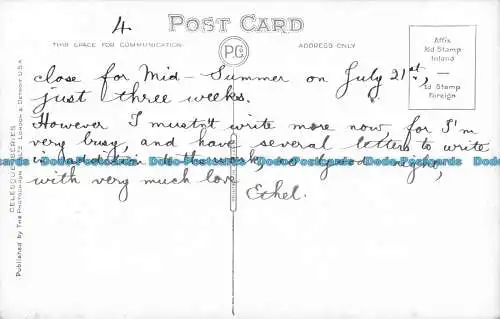 4
POST CARD
THIS SPACE FOR COMMUNICATION.
PC
ADDRESS ONLY
Affix
½d Stamp
Inland
1d Stamp
Foreign
close for Mid-Summer on July 21st,
just three weeks.
However I mustn't write more now, for I'm
very busy, and have several letters to write
in addition to the work, so good-night,
with very much love
Ethel.
CELESQUE SERIES
Published by THE PHOTOCHROM CO LTD LONDON & DETROIT U.S.A
Dodo-Postcards Dodo-Postcards Dodo-Postcards Dodo-Postcards